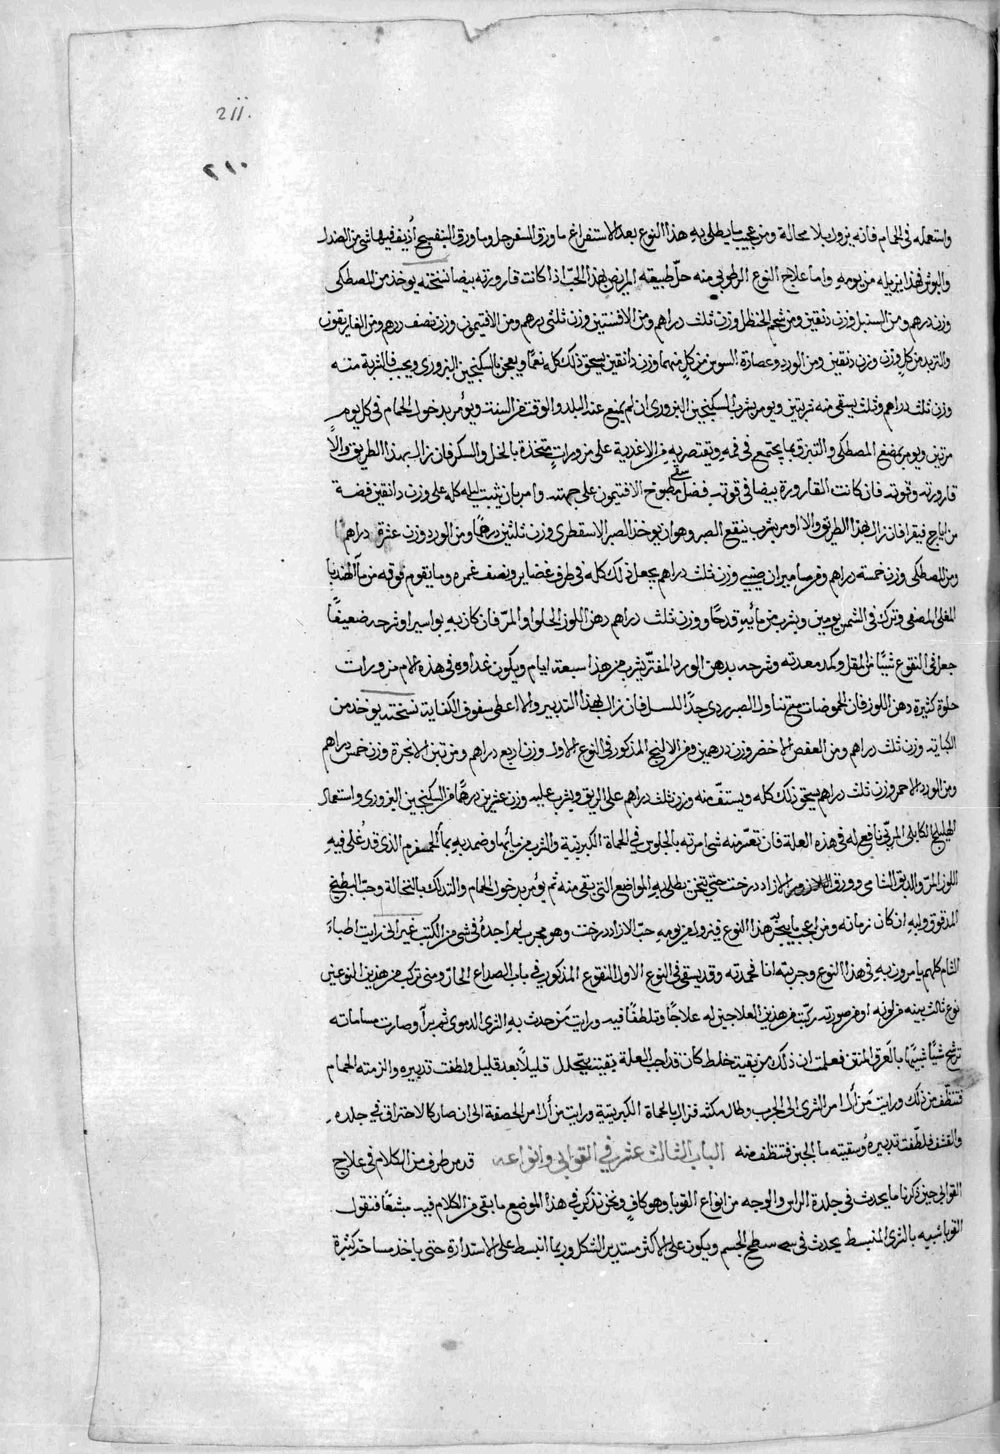 211.
٢١٠
واستعمله في الحمام فانه يزول بلا محالة ومن عجيب ما يطلى به هذا النوع بعد الاستفراغ ماورق السفرجل وماورق البنفسج أذيف فيهاشي من الصندل
فهذا يزيله من يومه واما علاج النوع الرطوبي منه حلّ طبيعته المريض بهذا الحبّ اذا كانت قارورته بيضا نسخته يوخذ من المصطكى
وزن درهم ومن السنبل وزن دنقين ومن شحم الحنظل وزن ثلث دراهم ومن الافسنتين وزن ثلثى درهم ومن الافتيمون وزن نصف درهم ومن الغاريقون
والتربد من كل وزن دنقين ومن الورد وعصارة السوس من كل منهما وزن دانقين يسحق ذلك كله نعمًا ويعجن بالسكنجبين البزوري ويحب فالشربة منه
وزن ثلث دراهم وثلث يسقى منه شربتين ويومر بشرب السكنجبين البزوري ان لم يمنع عنه البلد والوقت من السنة ويؤمر بدخول الحمام في كل يوم
مرتين ويومر بمضغ المصطكى والتبزق بما يجتمع في فمه ويقتصر به من الاغدية على مزورات متخذة بالخل والسكر فان زال بهذا الطريق والاّ
قارورته وقوته فان كانت القارورة بيضا في قوته فضل سقى مطبوخ الافتيمون على جهته وامر بان يثبت ليله كله على وزن دانقين فضة
من ايارج فيقرا فان زال بهذا الطريق والا اومر بشرب نقيع الصبر وهو ان يوخذ الصبر الاسقطرى وزن ثلثين درهمًا ومن الورد وزن عشرة دراهم
ومن المصطكى وزن خمسة دراهم ومن ماميران صيني وزن ثلث دراهم يجعل ذلك كله في ظرف غضاير ونصف غمره وما يقوم فوقه من مآ الهندبا
المغلى المصفى وترك في الشمس يومين ويشرب من مائه قدحًا ووزن ثلث دراهم دهن اللوز الحلو او المرّ فان كان به بواسير او شرجه ضعيفًا
جعل في النقوع شيًا من المقل وكمد معدته وشرجه بدهن الورد المفتّر يشرب من هذا سبعة ايام ويكون غداوه في هذه الايام مزورات
حلوة كثيرة دهن اللوز فان الحموضات مع تناول الصبر ردى جدًا للنسل فان زال بهذا التدبير والا اعطى سفوف الكفاية نسخته يوخذ من
الكبابة وزن ثلث دراهم ومن العفص الاخضر وزن درهمين ومن الاليلج المذكور في النوع الاول وزن اربع دراهم ومن تبن الانجرة وزن خمس دراهم
ومن الورد الاحمر وزن ثلث دراهم يسحق ذلك كله ويستفّ منه وزن ثلث دراهم على الريق ويشرب عليه وزن عشرين درهمًا من السكنجبين البزوري واستعمال
الهليلج الكابلى المربّى نافع له في هذه العلة فان تعسّر منه شى امرته بالجلوس في الحماة الكبريتية والشرب من مائها وضمد به بمآ الحصرم الذى قد غلى فيه
اللوز المرّ والدبق الشامى وورق الازاددرخت حتى يثخن يطلى به المواضع التى بقى منه ثم يؤمر بدخول الحمام والتدلك بالنخالة وحبّ البطيخ
المدقوق وليه ان كان زمانه ومن اعجب ما يبخّر به هذا النوع فيزول من يومه حبّ الازاددرخت وهو مجرب لم اجدهُ في شى من الكتب غير انى رايت اطباء
الشام كلهم يامرون به في هذا النوع وجربته انا فحمدته وقد يسقى في النوع الاول المنقوع المذكور في باب الصداع الحارّ ومتى تركب من هذين النوعين
نوع ثالث بينه من لونه او من صورته ركّبت من هذين العلاجين له علاجًا وتلطفًا فيه ورايت من حدث به الشرى الدموى شهرًا وصارت مساماته
ترشح شيًا شبيهًا بالعرق المنتن فعلمت ان ذلك من بقيت خلط كان قد اجب العلة بقيت يتحلل قليلًا بعد قليل ولطفت تدبيره والزمته الحمام
فتنظّف من ذلك ورايت من أل امر الشرى الى الجرب وطال مكثه فزال بالحماة الكبريتية ورايت من أل امر الحصفة الى ان صار كالاحتراق في جلده
والقشف فلطّفت تدبيرهُ وسقيته ما الجبن فتنظف منه الباب الثالث عشر في القوابى وانواعه قد مر طرف من الكلام في علاج
القوابى حين ذكرنا ما يحدث في جلدة الراس والوجه من انواع القوبا وهو كافٍ ونحن نذكر في هذا الموضع ما بقى من الكلام فيه مشبّعًا فنقول
القوبا شبيه بالشرى المنبسط يحدث في سطح الجسم ويكون على الاكثر مستدير الشكل وربما انبسط على الاستدارة حتى ياخذ مساحة كثيرة